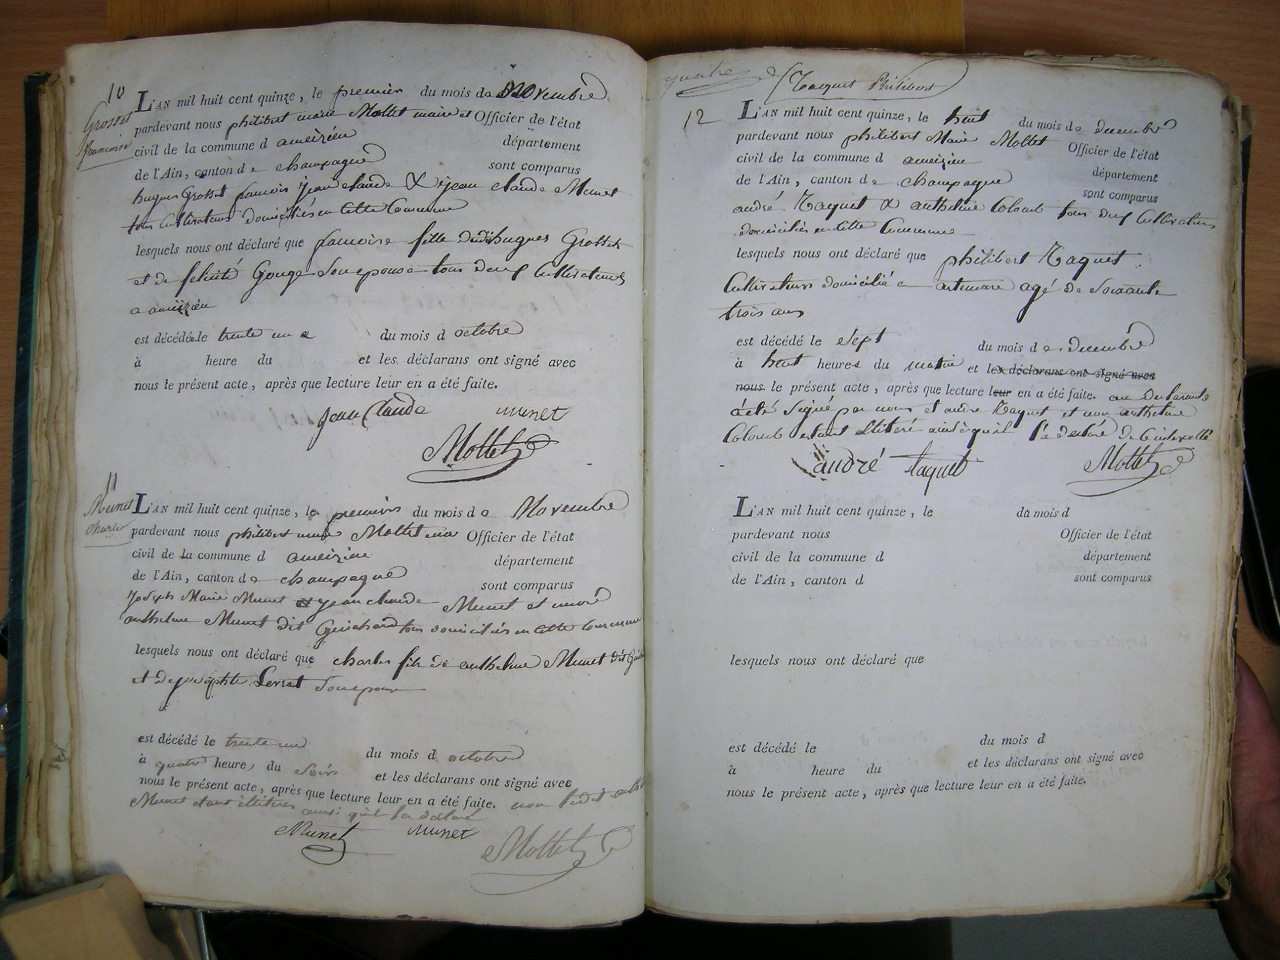 10
Grosset
françoise
L'AN mil huit cent quinze, le premier du mois de Novembre
pardevant nous philibert marie Mollet maire et Officier de l'état
civil de la commune d ameizieu département
de l'Ain, canton de champagne sont comparus
hugues Grosset jean claude & jean claude Munet
tous cultivateurs domiciliés en cette Commune
lesquels nous ont déclaré que françoise fille dudit hugues Grosset
et de félicité Gouge Son epouse tous deux Cultivateurs
a ameizieu
est décédée le trente un du mois d octobre
à heure du et les déclarans ont signé avec
nous le présent acte, après que lecture leur en a été faite.
jean Claude munet
Mollet
11
Munet
charles
L'AN mil huit cent quinze, le premier du mois de Novembre
pardevant nous philibert marie Mollet maire Officier de l'état
civil de la commune d ameizieu département
de l'Ain, canton de champagne sont comparus
Joseph Marie Munet et jean claude Munet et encore
anthelme Munet dit Guichard tous domiciliés en cette commune
lesquels nous ont déclaré que charles fils de anthelme Munet dit
et de Son epouse
est décédé le trente un du mois d octobre
à quatre heures du Soir et les déclarans ont signé avec
nous le présent acte, après que lecture leur en a été faite. non ledit anthelme
Munet étant illitéré ainsi qu'il l'a déclaré
Munet munet Mollet
quatre Taquet Philibert
12
L'AN mil huit cent quinze, le huit du mois de decembre
pardevant nous philibert Marie Mollet Officier de l'état
civil de la commune d ameizieu département
de l'Ain, canton de champagne sont comparus
andré Taquet & anthelme Colomb tous deux Cultivateurs
domiciliés en cette Commune
lesquels nous ont déclaré que philibert Taquet
Cultivateur domicilié a artemare agé de Soixante
trois ans
est décédé le Sept du mois de decembre
à huit heures du matin et les déclarans ont signé avec
nous le présent acte, après que lecture leur en a été faite. aux declarants
a été Signé par nous et andré Taquet et non anthelme
Colomb etant illiteré ainsi qu'il l'a declaré de ce interpellé
andré taquet Mollet
L'AN mil huit cent quinze, le du mois d
pardevant nous Officier de l'état
civil de la commune d département
de l'Ain, canton d sont comparus
lesquels nous ont déclaré que
est décédé le du mois d
à heure du et les déclarans ont signé avec
nous le présent acte, après que lecture leur en a été faite.